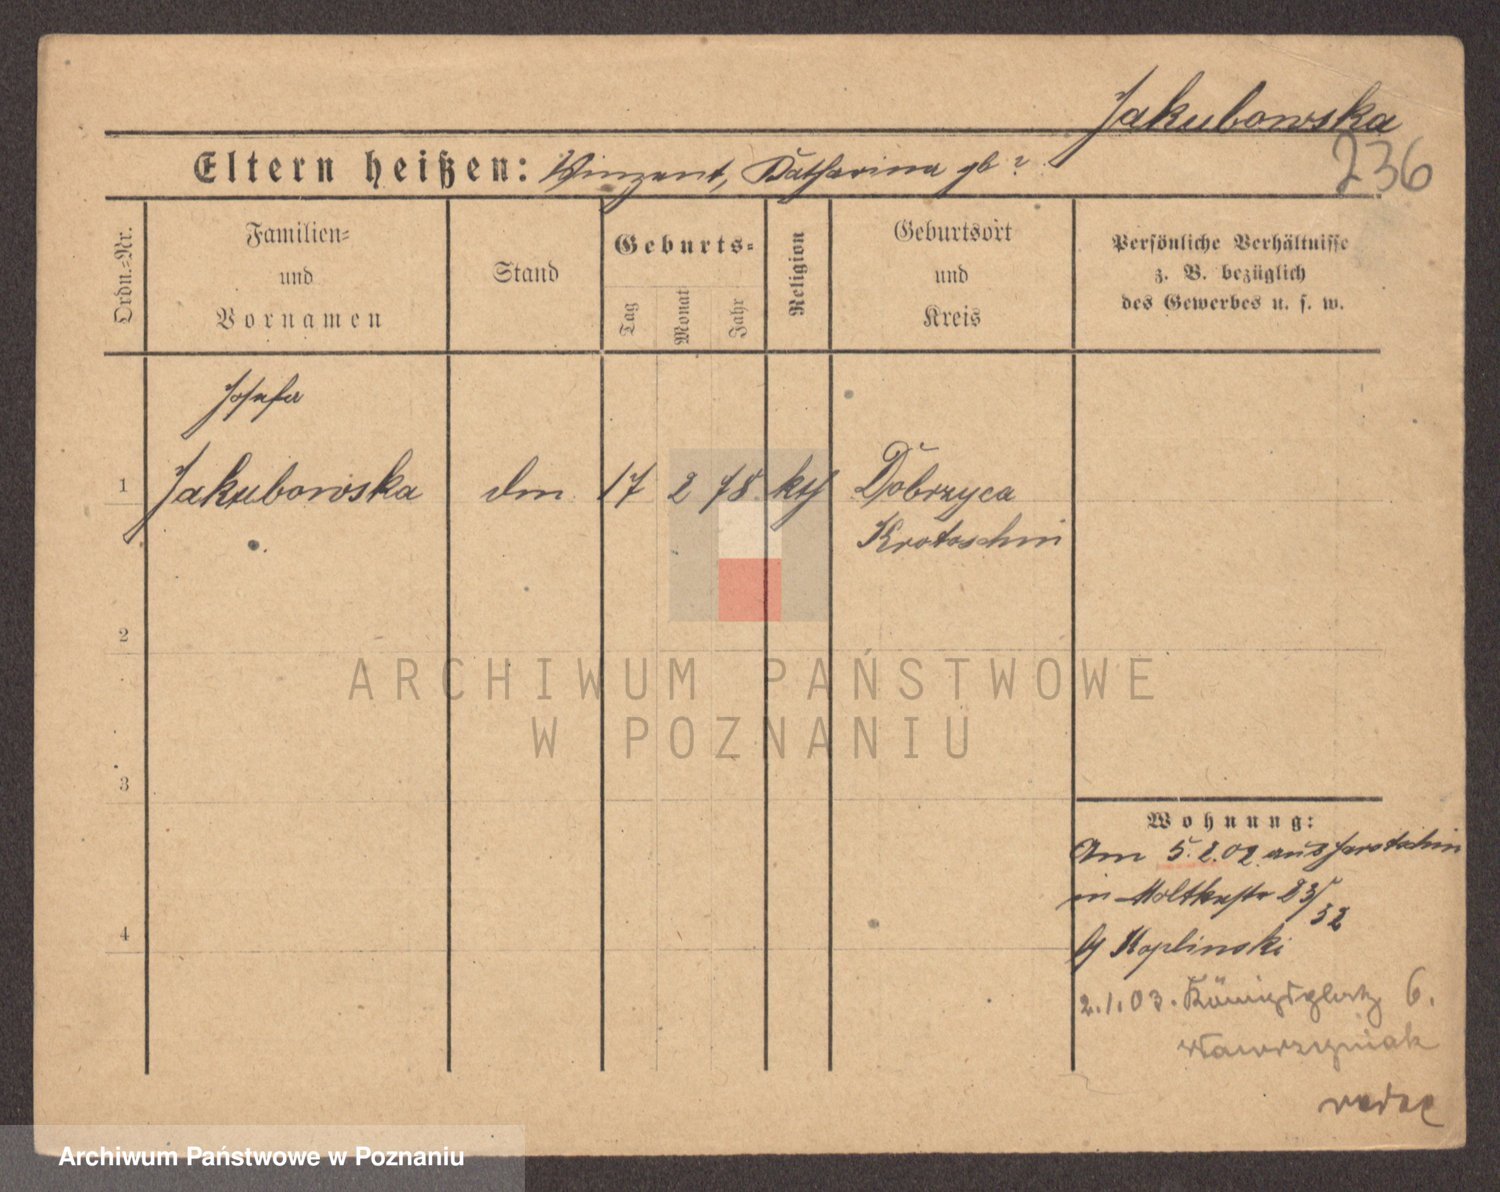 Jakubowska
236
Eltern heißen: Winzent, Katharina gb ?
Ordn.-Nr.
Familien-
und
Vornamen
Stand
Geburts-
Tag
Monat
Jahr
Religion
Geburtsort
und
Kreis
Persönliche Verhältnisse
z. B. bezüglich
des Gewerbes u. s. w.
Josefa
1 Jakubowska dm 17 2 78 kth Dobrzyca
Krotoschin
2
3
4
Wohnung:
Am 5.2.02 aus Jarotschin
in Moltkestr 23/
32
by Koplinski
2.1.03. Königsplatz 6.
Wawrzyniak
ARCHIWUM PAŃSTWOWE
W POZNANIU
Archiwum Państwowe w Poznaniu